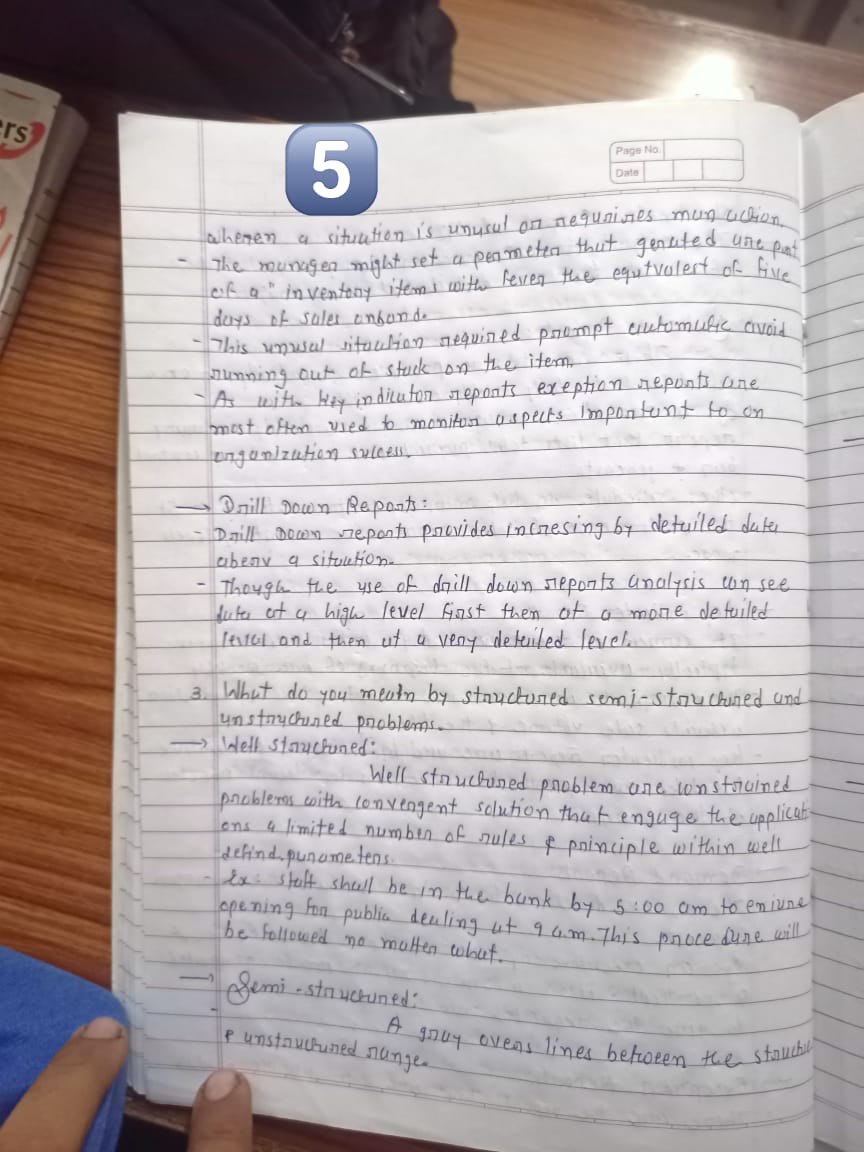 ers
5
Page No.
Date
wheren a situation is unusul or requrires mun action.
- The manager might set a permeter that genuted une punt
of a" inventory items with fever the equtvalest of five
days of sales onband.
- This unusul situation required prompt automatic avoid
running out of stuck on the item.
- As with key indicator reports exeption reports are
most often used to monitor aspects important to on
organization sulcess.
→ Drill Down Reports:
- Drill Down reports provides incresing by detailed data
abenv a situation.
- Though the use of drill down reports analysis can see
data at a high level first then at a more detailed
level and then at a very detailed level.
3. What do you meatn by structured semi-structured and
unstructured problems.
→ Well structured:
Well structured problem are constrained
problems with convergent solution that enguge the applicat
ons a limited number of rules & principle within well
defind, parameters.
- Ex: staff shall be in the bank by 5:00 am to eniure
opening for public dealing at 9 a.m. This procedure will
be followed no matter what.
→ Semi-structured:
-
A gray overs lines between the structu
& unstructured range.